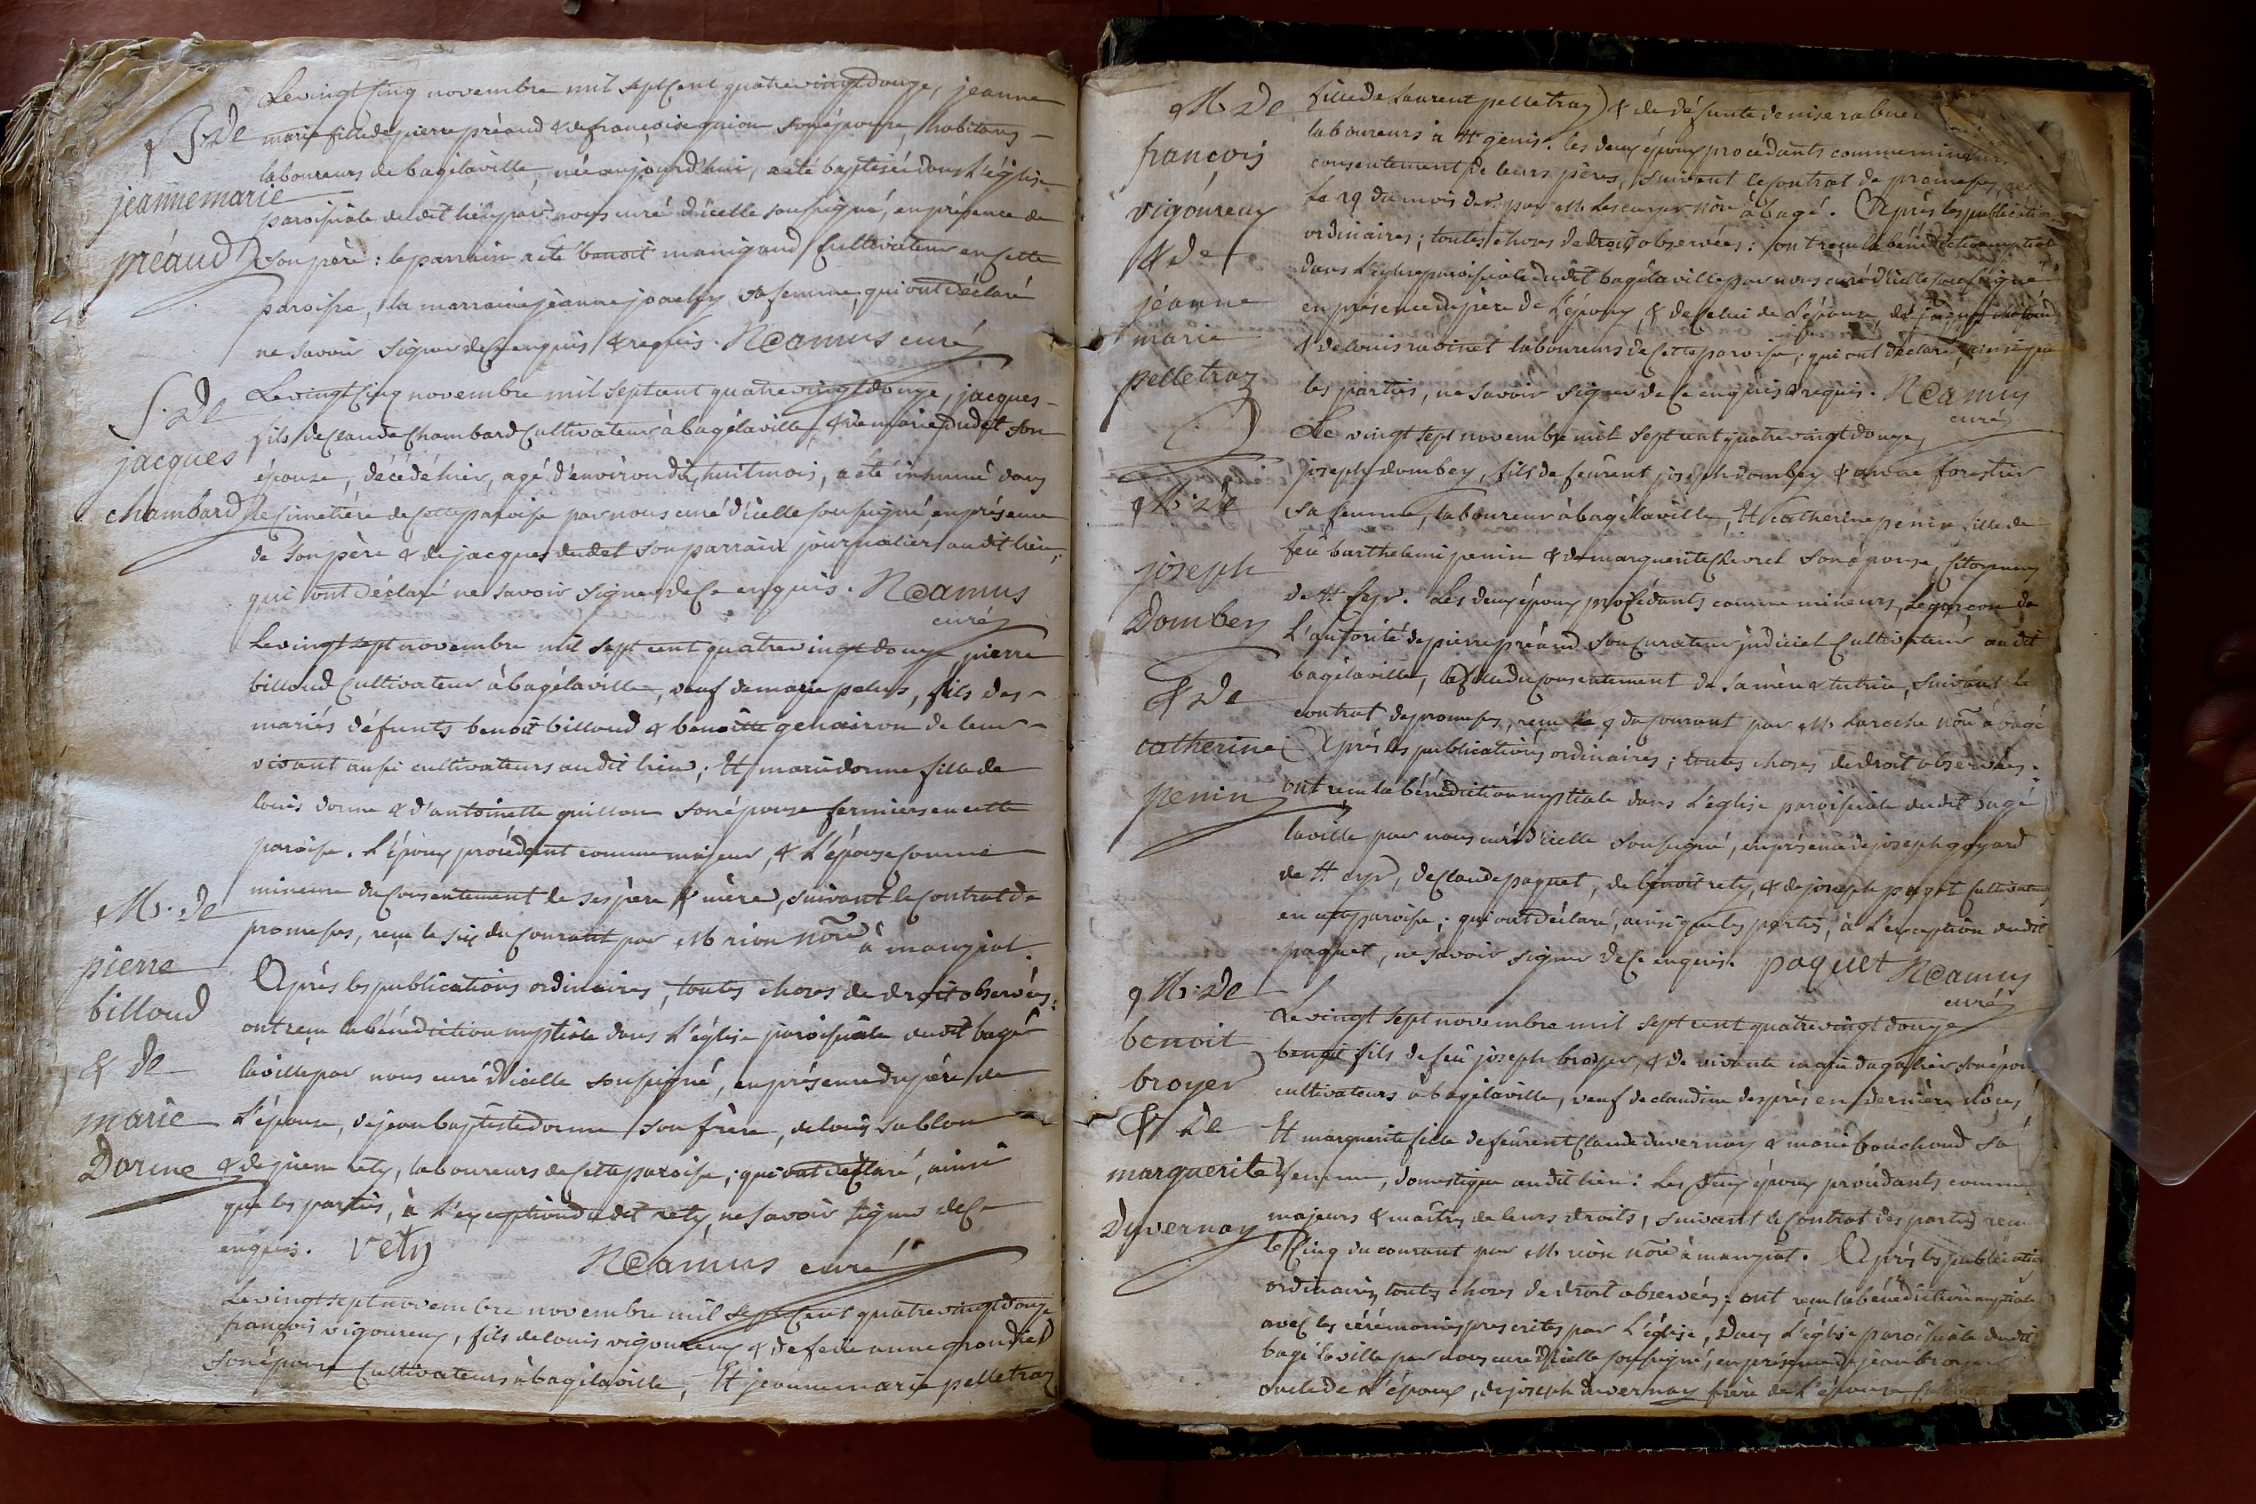 B. de
jeannemarie
préaud
Le vingt cinq novembre mil sept cent quatre vingt douze, jeanne
marie fille de pierre préaud & de françoise guion son épouse, habitans
laboureurs de bagélaville, née aujourd'hui, a été baptisée dans l'église
paroissiale dudit lieu par nous curé d'icelle soussigné, en présence de
son père : le parrain a été benoit manigand cultivateur en cette
paroisse, la marraine jeanne joachy sa femme, qui ont déclaré
ne savoir signer de ce enquis & requis. N Camus curé
S. de
jacques
chambard
Le vingt cinq novembre mil sept cent quatre vingt douze, jacques
fils de claude chambard cultivateur à bagélaville, & de marie dudet son
épouse, décédé hier, agé d'environ dix huit mois, a été inhumé dans
le cimetière de cette paroisse par nous curé d'icelle soussigné, en présence
de son père & de jacques dudet son parrain journalier audit lieu,
qui ont déclaré ne savoir signer de ce enquis. N Camus
curé
M. de
pierre
billoud
& de
marie
Dorme
Le vingt sept novembre mil sept cent quatre vingt douze pierre
billoud cultivateur à bagélaville, veuf de marie palus, fils des
mariés défunts benoit billoud & benoitte genairon de leur
vivant aussi cultivateurs audit lieu ; Et marie dorme fille de
louis dorme & d'antoinette guillon son épouse fermiers en cette
paroisse. L'époux procédant comme majeur, & L'épouse comme
mineure du consentement de ses père & mère, suivant le contrat de
promesses, reçu le six du courant par M rion nore à manziat.
Après les publications ordinaires, toutes choses de droit observées :
ont reçu la bénédiction nuptiale dans l'église paroissiale dudit bagé
laville par nous curé d'icelle soussigné, en présence du père de
l'épouse, de jean baptiste dorme son frère, de louis sablon
& de pierre rety, laboureurs de cette paroisse ; qui ont déclaré, ainsi
que les parties, à l'exception dudit rety, ne savoir signer de ce
enquis. rety N Camus curé
Le vingt sept novembre novembre mil sept cent quatre vingt douze
françois vigoureux, fils de louis vigoureux & de feue anne
son épouse cultivateurs à bagélaville, Et jeanne marie pelletraz
M. de
françois
vigoureux
& de
jeanne
marie
pelletraz
fille de laurent pelletraz & de défunte denise
laboureurs à St genis. les deux époux procédants comme mineurs
consentement de leurs pères, suivant le contrat de promesses,
Le 29 du mois der. par M. Lescuyer nore à bagé. Après les publications
ordinaires ; toutes choses de droit observées : ont reçu la bénédiction nuptiale
dans l'église paroissiale dudit bagélaville par nous curé d'icelle soussigné
en présence du père de l'époux, & de celui de l'épouse,
& de louis rabinet laboureurs de cette paroisse ; qui ont déclaré, ainsi que
les parties, ne savoir signer de ce enquis & requis. N Camus
curé
M. de
joseph
Dombey
& de
catherine
penin
Le vingt sept novembre mil sept cent quatre vingt douze
joseph dombey, fils de feurent joseph dombey & anne forestier
sa femme, laboureur à bagélaville, Et catherine penin fille de
feu barthelemi penin & de marguerite chevrel son épouse, citoyenne
de St cyr. Les deux époux procédants comme mineurs, le garçon de
l'autorité de pierre préaud son curateur judiciel cultivateur audit
bagélaville, la fille du consentement de sa mère & tutrice, suivant le
contrat de promesses, reçu le 9 du courant par M. Laroche nore à bagé
Après les publications ordinaires ; toutes choses de droit observées :
ont reçu la bénédiction nuptiale dans l'église paroissiale dudit bagé
laville par nous curé d'icelle soussigné, en présence de joseph goyard
de St cyr, de claude paquet, de benoit rety, & de joseph pagot cultivateurs
en cette paroisse ; qui ont déclaré, ainsi que les parties, à l'exception dudit
paquet, ne savoir signer de ce enquis. paquet N Camus
curé
M. de
benoit
broyer
& de
marguerite
Duvernay
Le vingt sept novembre mil sept cent quatre vingt douze
benoit fils de feu joseph broyer, & de vivante marie dagalier son épouse
cultivateurs à bagélaville, veuf de claudine desprès en dernière nôces
Et marguerite fille de feurent claude duvernay & marie bouchoud sa
femme, domestique audit lieu : Les deux époux procédants comme
majeurs & maîtres de leurs droits, suivant le contrat des parties reçu
le cinq du courant par M. rion nore à manziat. Après les publications
ordinaires, toutes choses de droit observées : ont reçu la bénédiction nuptiale
avec les cérémonies prescrites par l'église, dans l'église paroissiale dudit
bagé laville par nous curé d'icelle soussigné, en présence de jean broyer
oncle de l'époux, de joseph duvernay frère de l'épouse,